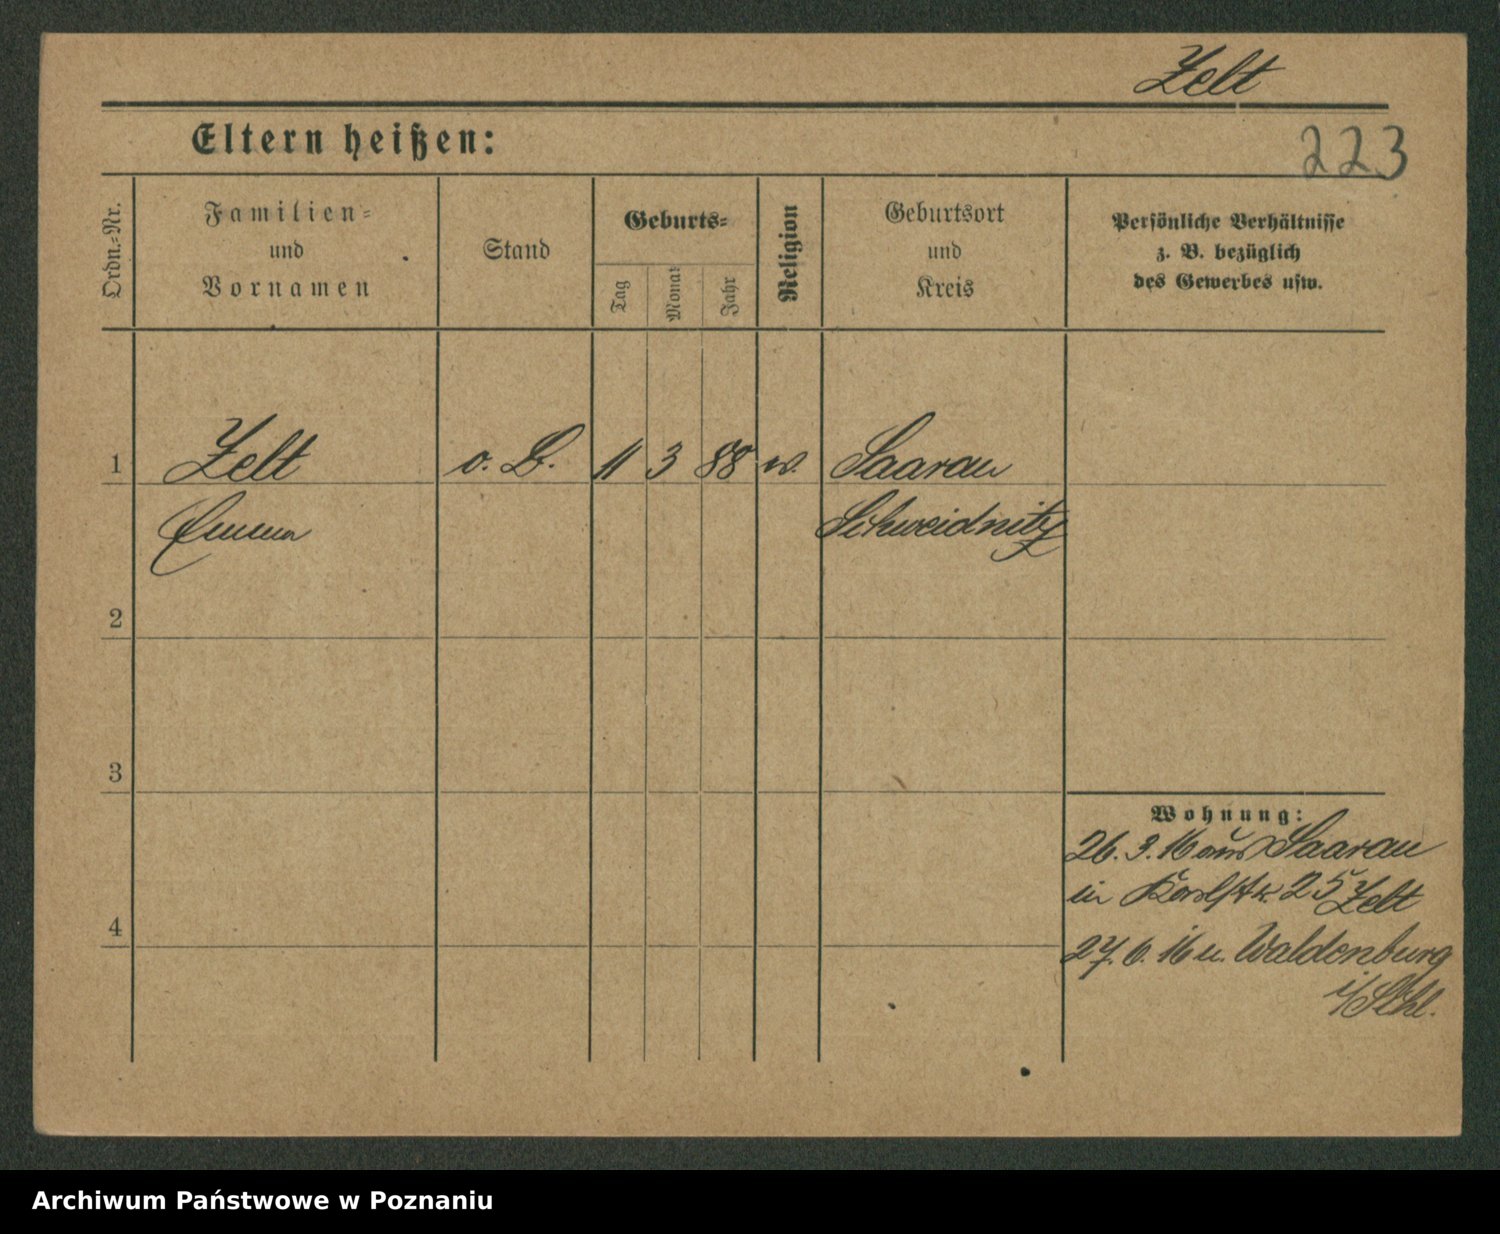 Zelt
Eltern heißen:
223
Ordn.-Nr.
Familien-
und
Vornamen
Stand
Geburts-
Tag
Monat
Jahr
Religion
Geburtsort
und
Kreis
Persönliche Verhältnisse
z. B. bezüglich
des Gewerbes usw.
1
Zelt
o. B.
11
3
88
w.
Saarau
Emma
Schweidnitz
2
3
Wohnung:
26. 3. 16 aus Saarau
in Karlstr. 25 Zelt
4
27. 6. 16 n. Waldenburg
i/Schl.
Archiwum Państwowe w Poznaniu